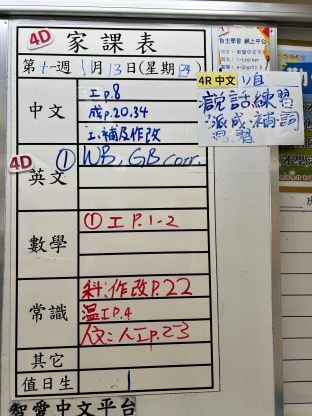 4D
家課表
第十一週 11月13日(星期四)
中文
工p.8
成p.20.34
工:補及作改
4D
英文
① WB, GB corr.
數學
① 工 P.1-2
常識
科:作改P.22
溫工P.4
人文:人工p.23
其它
值日生
1
智愛中文平台
自主學習 網上平台
4R 中文
說話練習
派成.補.詞